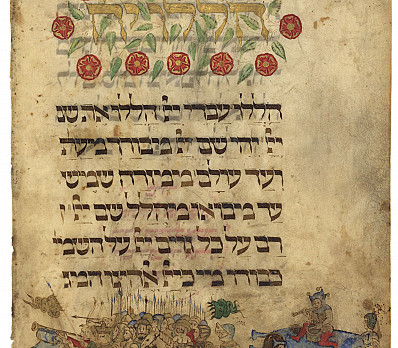 הללויה
הללו עבדי ייי הללו את שם
ייי יהי שם ייי מבורך מעתה
ועד עולם ממזרח שמש
עד מבואו מהלל שם ייי
רם על כל גוים ייי על השמי
כבודו מי כייי אלהינו